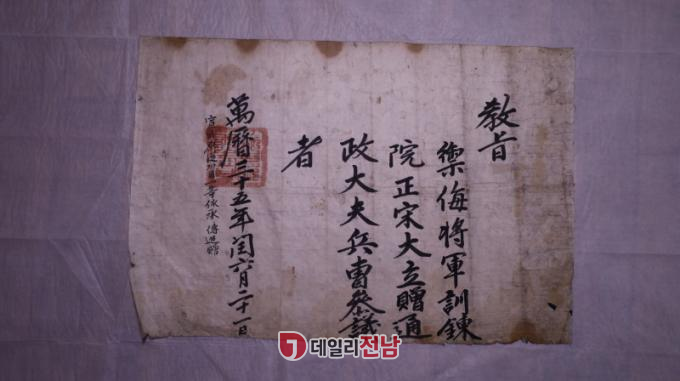 教旨
禦侮將軍訓鍊
院正宋大立贈通
政大夫兵曺叅議
者
萬曆三十五年閏六月二十一日
宣武 二等 依承 傳追贈
데일리전남